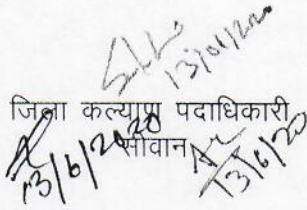 13/01/2020
जिला कल्याण पदाधिकारी
सीवान
13/6/2020
13/6/20